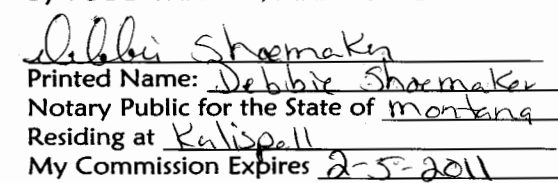 Debbie Shoemaker
Printed Name: Debbie Shoemaker
Notary Public for the State of Montana
Residing at Kalispell
My Commission Expires 2-5-2011